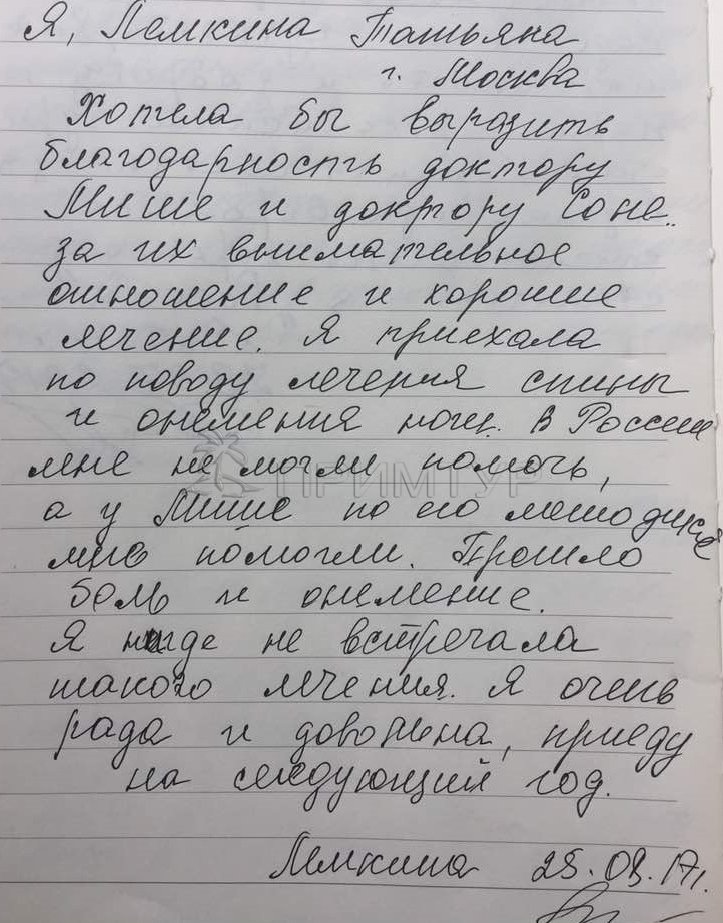 Я, Лемкина Татьяна
г. Москва
Хотела бы выразить
благодарность доктору
Мише и доктору Соне..
за их внимательное
отношение и хорошие
лечение. Я приехала
по поводу лечения спины
и онемения ноги. В России
мне не могли помочь,
ПРИМТУР
а у Мише по его методике
мне помогли. Прошло
боль и онемение.
Я нигде не встречала
такого лечения. Я очень
рада и довольна, приеду
на следующий год.
Лемкина 25.09.17г.